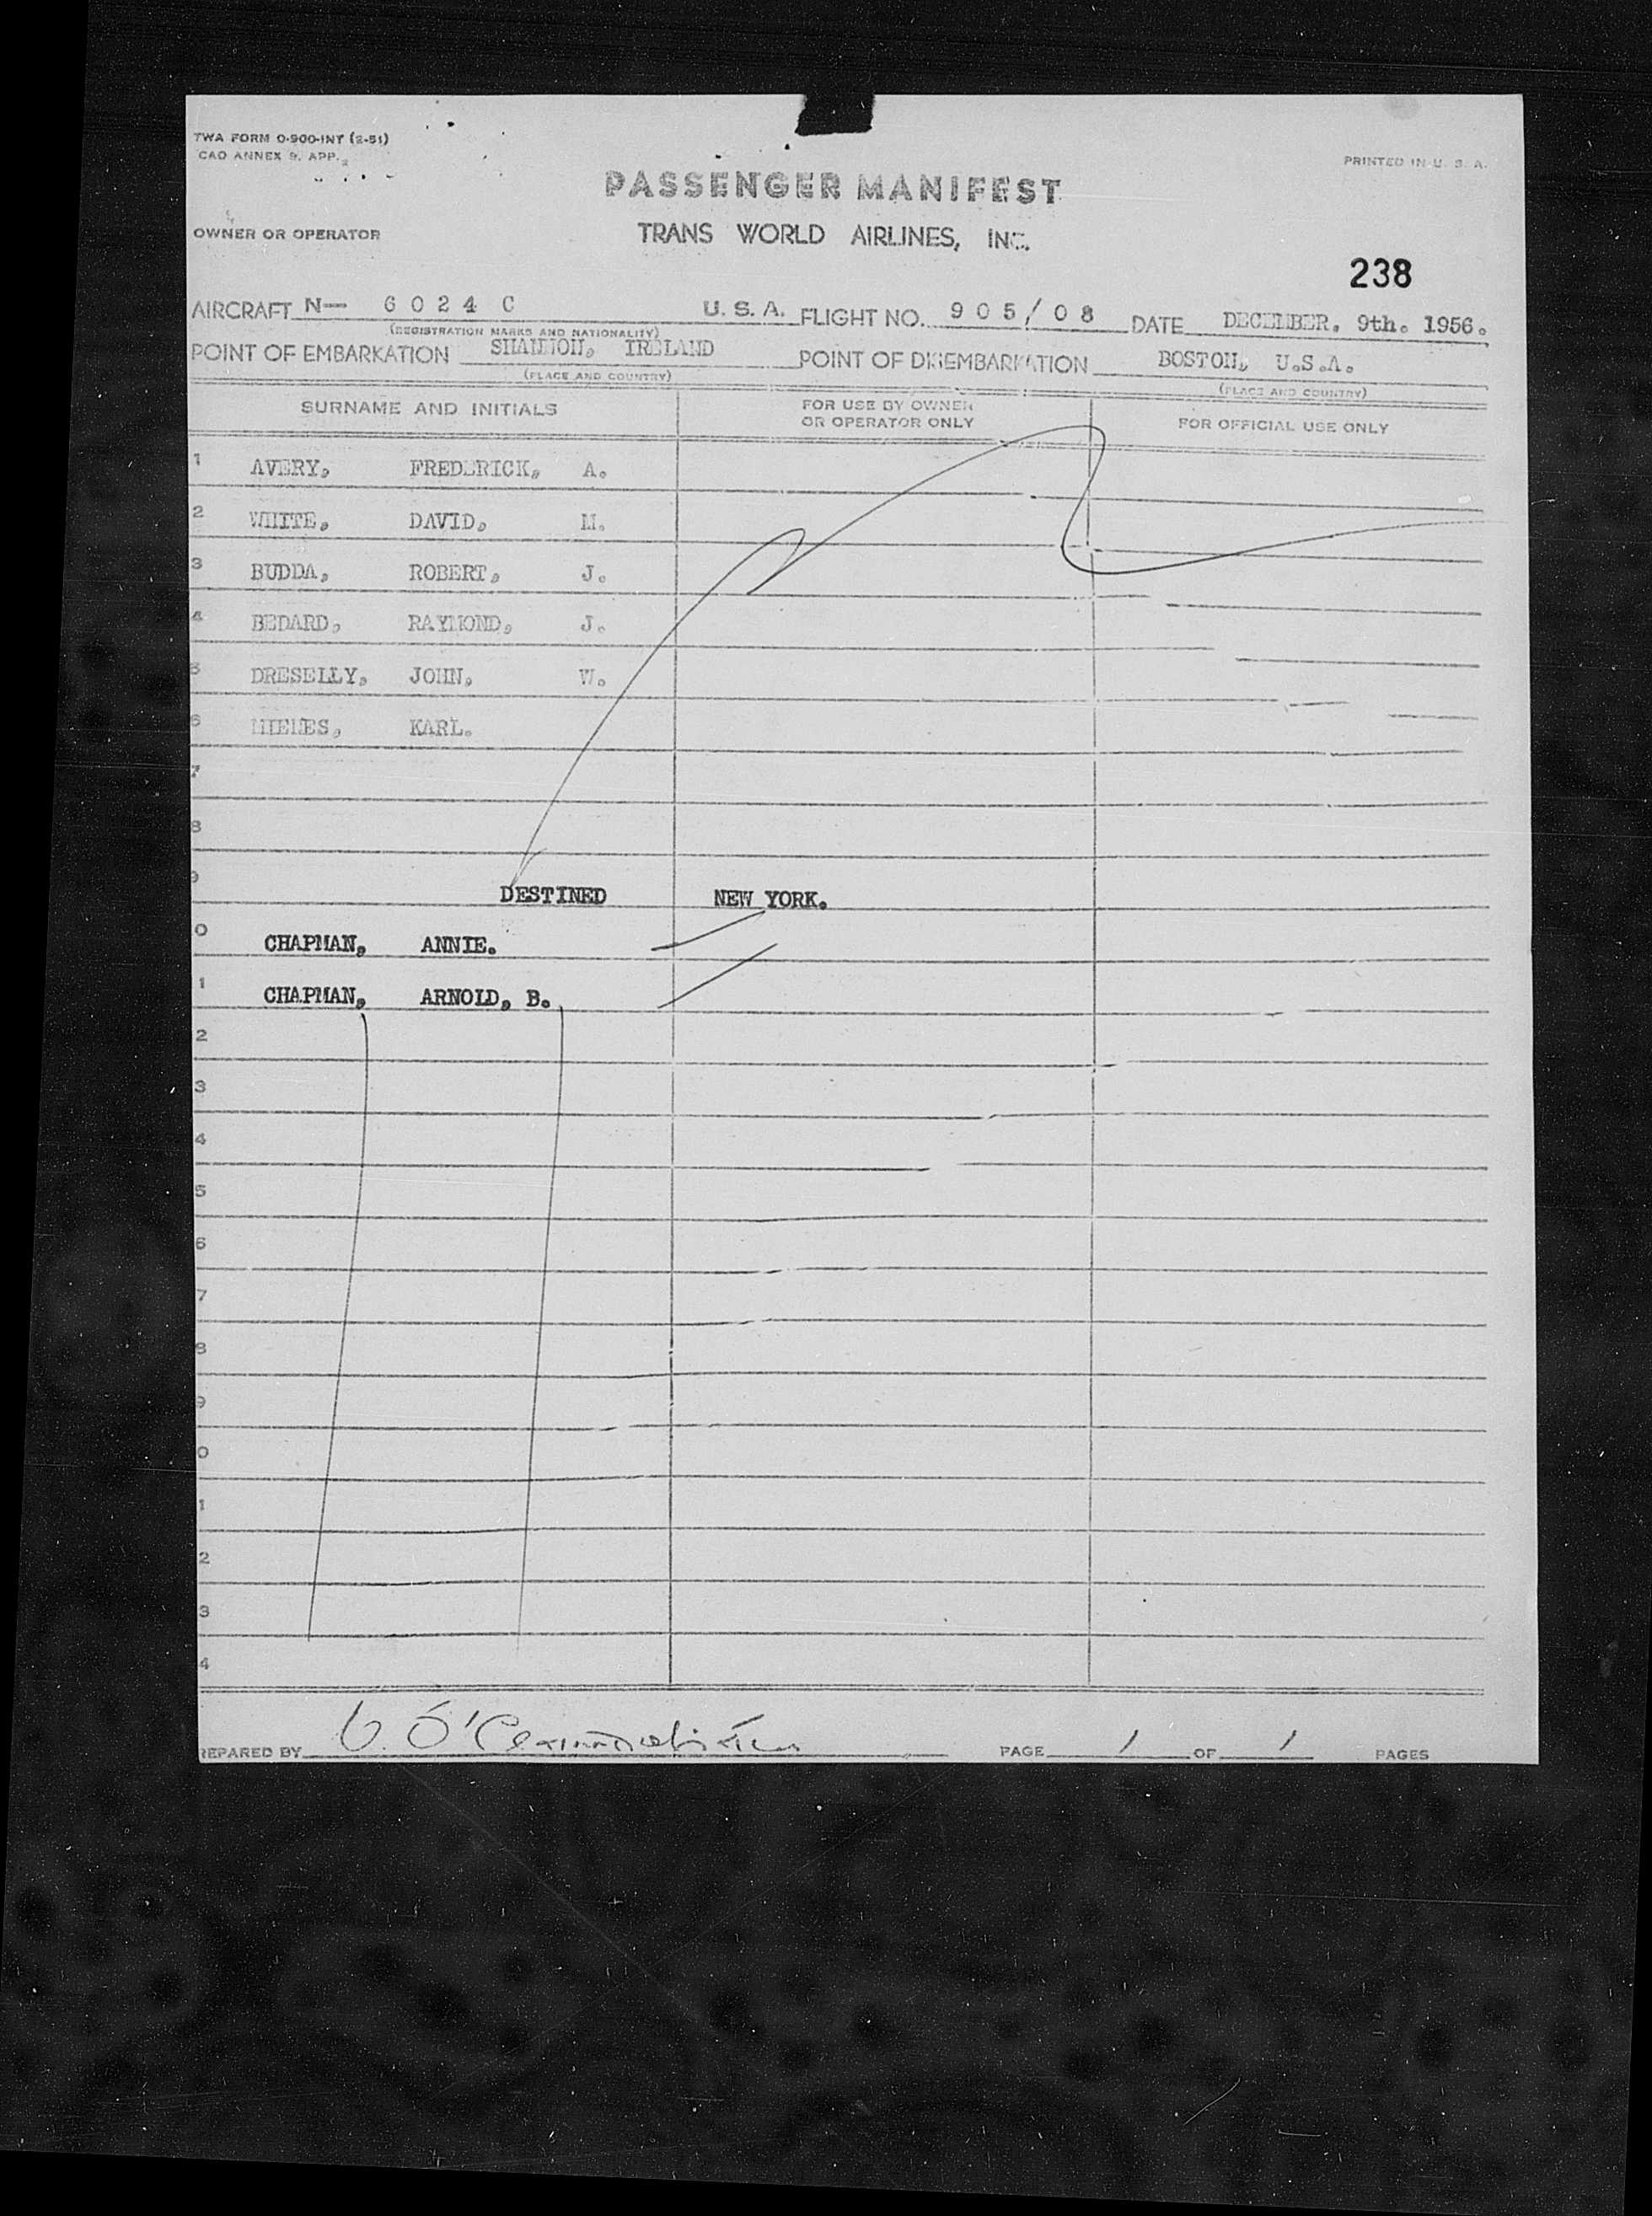 TWA FORM 0-900-INT (2-51)
CAO ANNEX 9. APP. 2
PRINTED IN U. S. A.
PASSENGER MANIFEST
OWNER OR OPERATOR TRANS WORLD AIRLINES, INC.
238
AIRCRAFT N— 6024 C U. S. A. FLIGHT NO. 905/08 DATE DECEMBER. 9th. 1956.
(REGISTRATION MARKS AND NATIONALITY)
POINT OF EMBARKATION SHANNON, IRELAND POINT OF DISEMBARKATION BOSTON, U.S.A.
(PLACE AND COUNTRY) (PLACE AND COUNTRY)
SURNAME AND INITIALS FOR USE BY OWNER OR OPERATOR ONLY FOR OFFICIAL USE ONLY
1 AVERY, FREDERICK, A.
2 WHITE, DAVID, M.
3 BUDDA, ROBERT, J.
4 BEDARD, RAYMOND, J.
5 DRESELLY, JOHN, W.
6 KARL.
7
8
9 DESTINED NEW YORK.
0 CHAPMAN, ANNIE.
1 CHAPMAN, ARNOLD, B.
2
3
4
5
6
7
8
9
0
1
2
3
4
REPARED BY PAGE 1 OF 1 PAGES